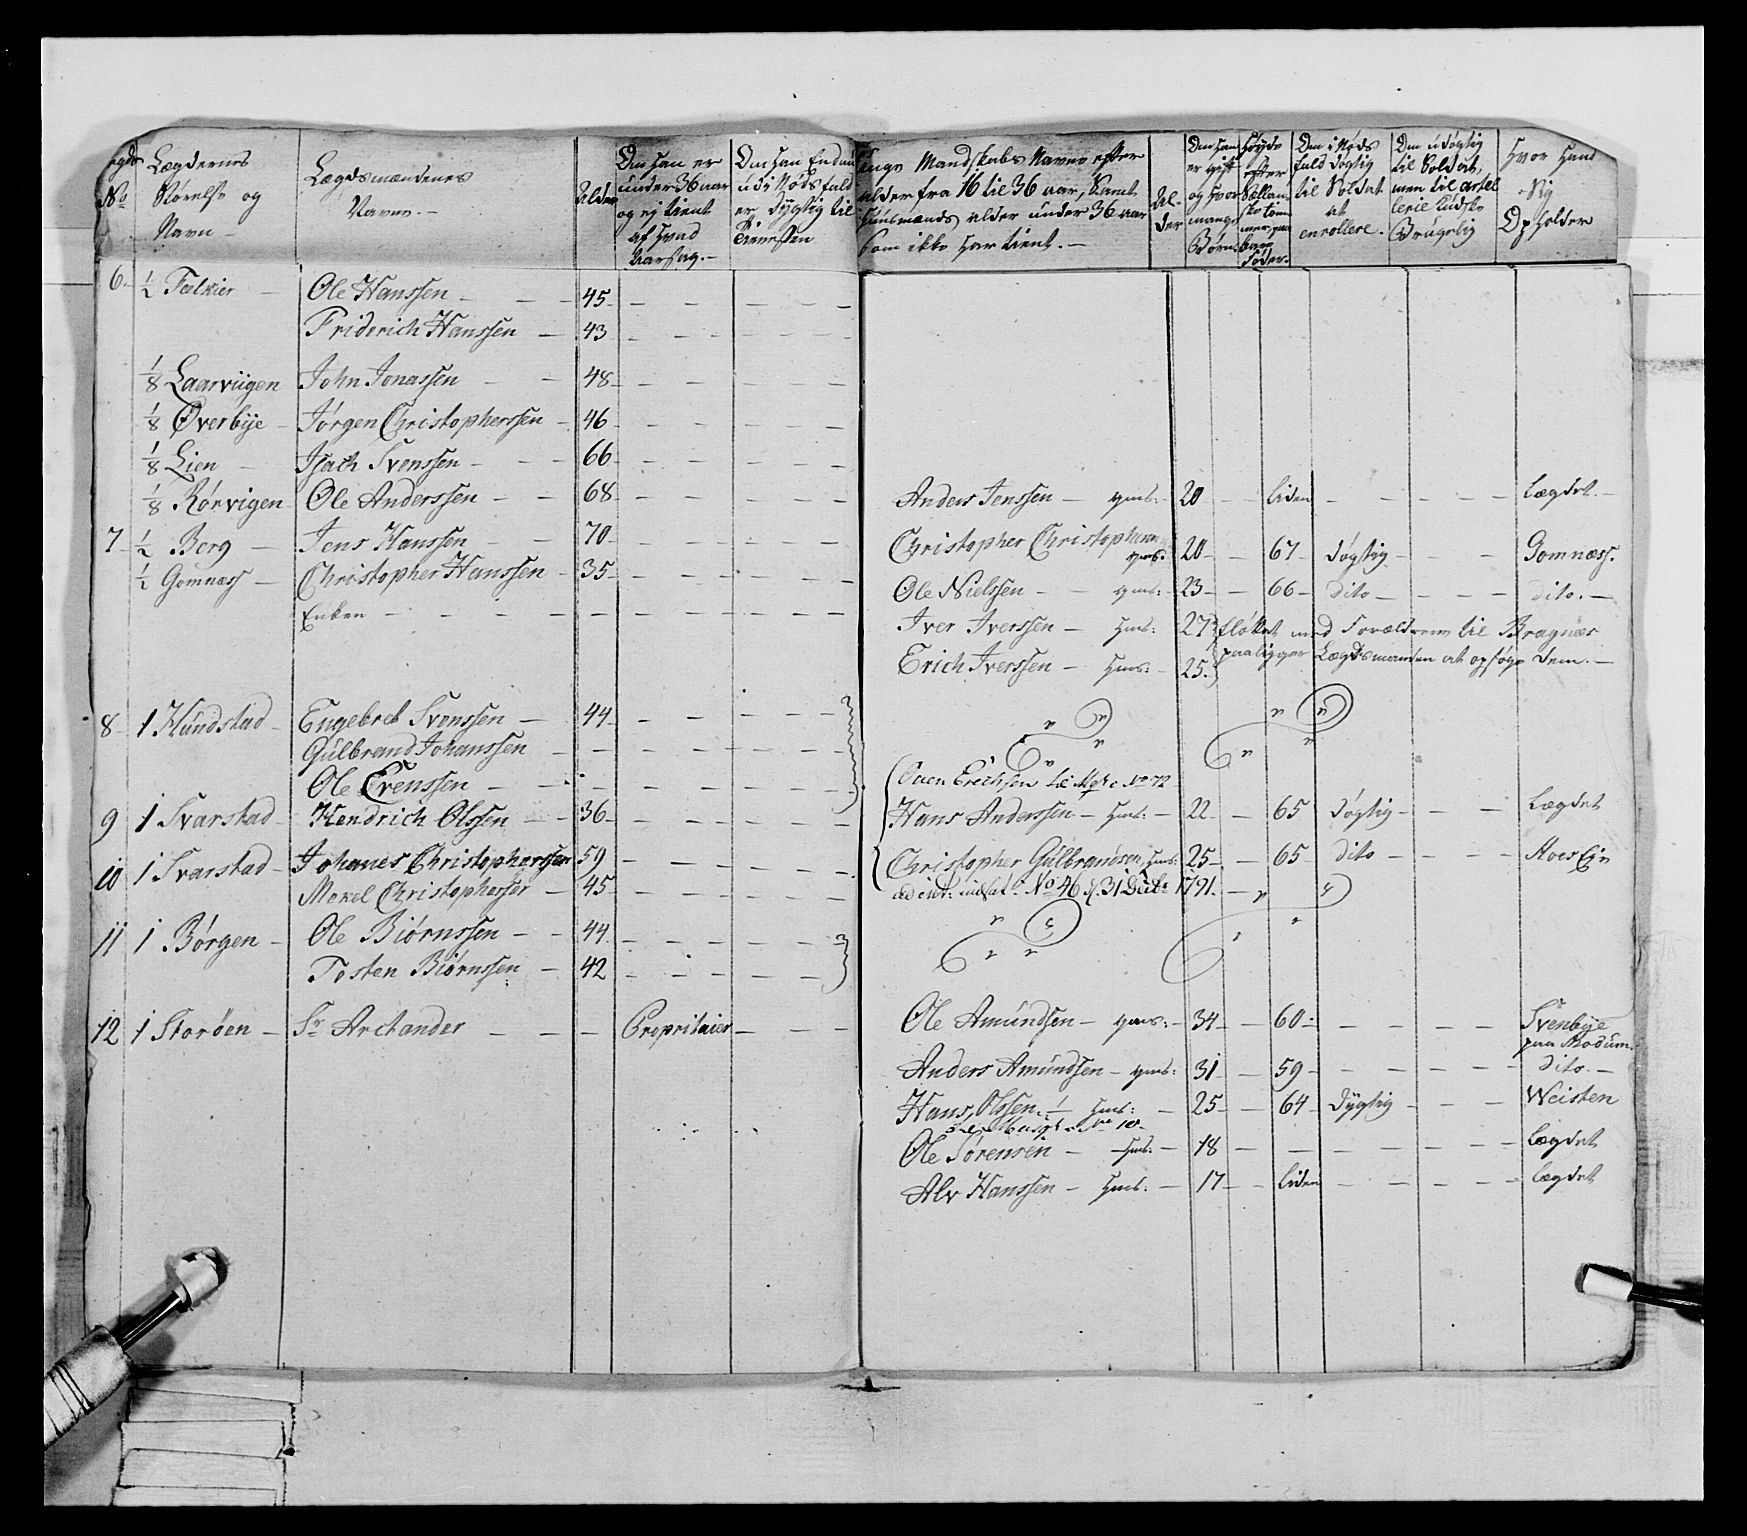 Lægdernes
Størrelse og
Navn
No
Lægdsmændenes
Navne.
Alder
Om han er
under 36 aar
og ej tient
af hvad
Aarsag.
Om han Endnu
udi Nødsfald
er dygtig til
Tienesten
unge Mandskabs Navne efter
alder fra 16 til 36 aar, samt
Huusmænds alder under 36 aar
som ikke har tient.
Al-
der
Om han
er gift
og hvor
mange
Børn
Høyde
efter
tom-
mer paa
bare
Føder.
Om i Nøds
fald døgtig
til Soldat
at
enrollere.
Om udøgtig
til Soldat,
men til artel
lerie kudsk
Brugelig
Hvor Hand
Sig
Opholder
6. ½ Fælkier Ole Hanssen 45
Friderich Hanssen 43
⅛ Laarviigen John Jonassen 48
⅛ Øverbÿe Jørgen Christopherssen 46
⅛ Lien Isach Svenssen 66
⅛ Rørvigen Ole Anderssen 68
Anders Jenssen gmds: 20 liden Lægdet.
7 ½ Berg Jens Hanssen 70
Christopher Christophersen gmds: 20 67 døgtig Gomnæss.
½ Gomnæss Christopher Hanssen 35
Ole Nielssen gmds: 23 66 dito dito.
Enken
Iver Iverssen Hmds: 27 fløttet med Forældrene til Bragnæs
Erich Iverssen Hmds: 25. paaligger Lægdsmanden at opsøge dem.
8 1 Hundstad Engebret Svenssen 44
Gulbrand Johanssen
Ole Evenssen
Even Erichsen No 72
9 1 Svarstad Hendrich Olssen 36
Hans Anderssen Hmds: 22 65 døgtig Lægdet
10 1 Svarstad Johanes Christopherssen 59
Christopher Gulbrandsen Hmds: 25 65 dito
Mekel Christophersen 45
No 46 d. 31 Decbr 1791.
11 1 Børgen Ole Biørnssen 44
Tosten Biørnssen 42
12 1 Storøen Sr Arctander Propritaier
Ole Amundsen gmds: 34 60 Svenbÿe
paa Modum.
Anders Amundsen gmds: 31 59 dito.
Hans Olssen Hmds: 25 64 dÿgtig Weisten
Ole Sørensen Hmds: 18 Lægdet
Alv Hanssen Hmds: 17 liden Lægdet